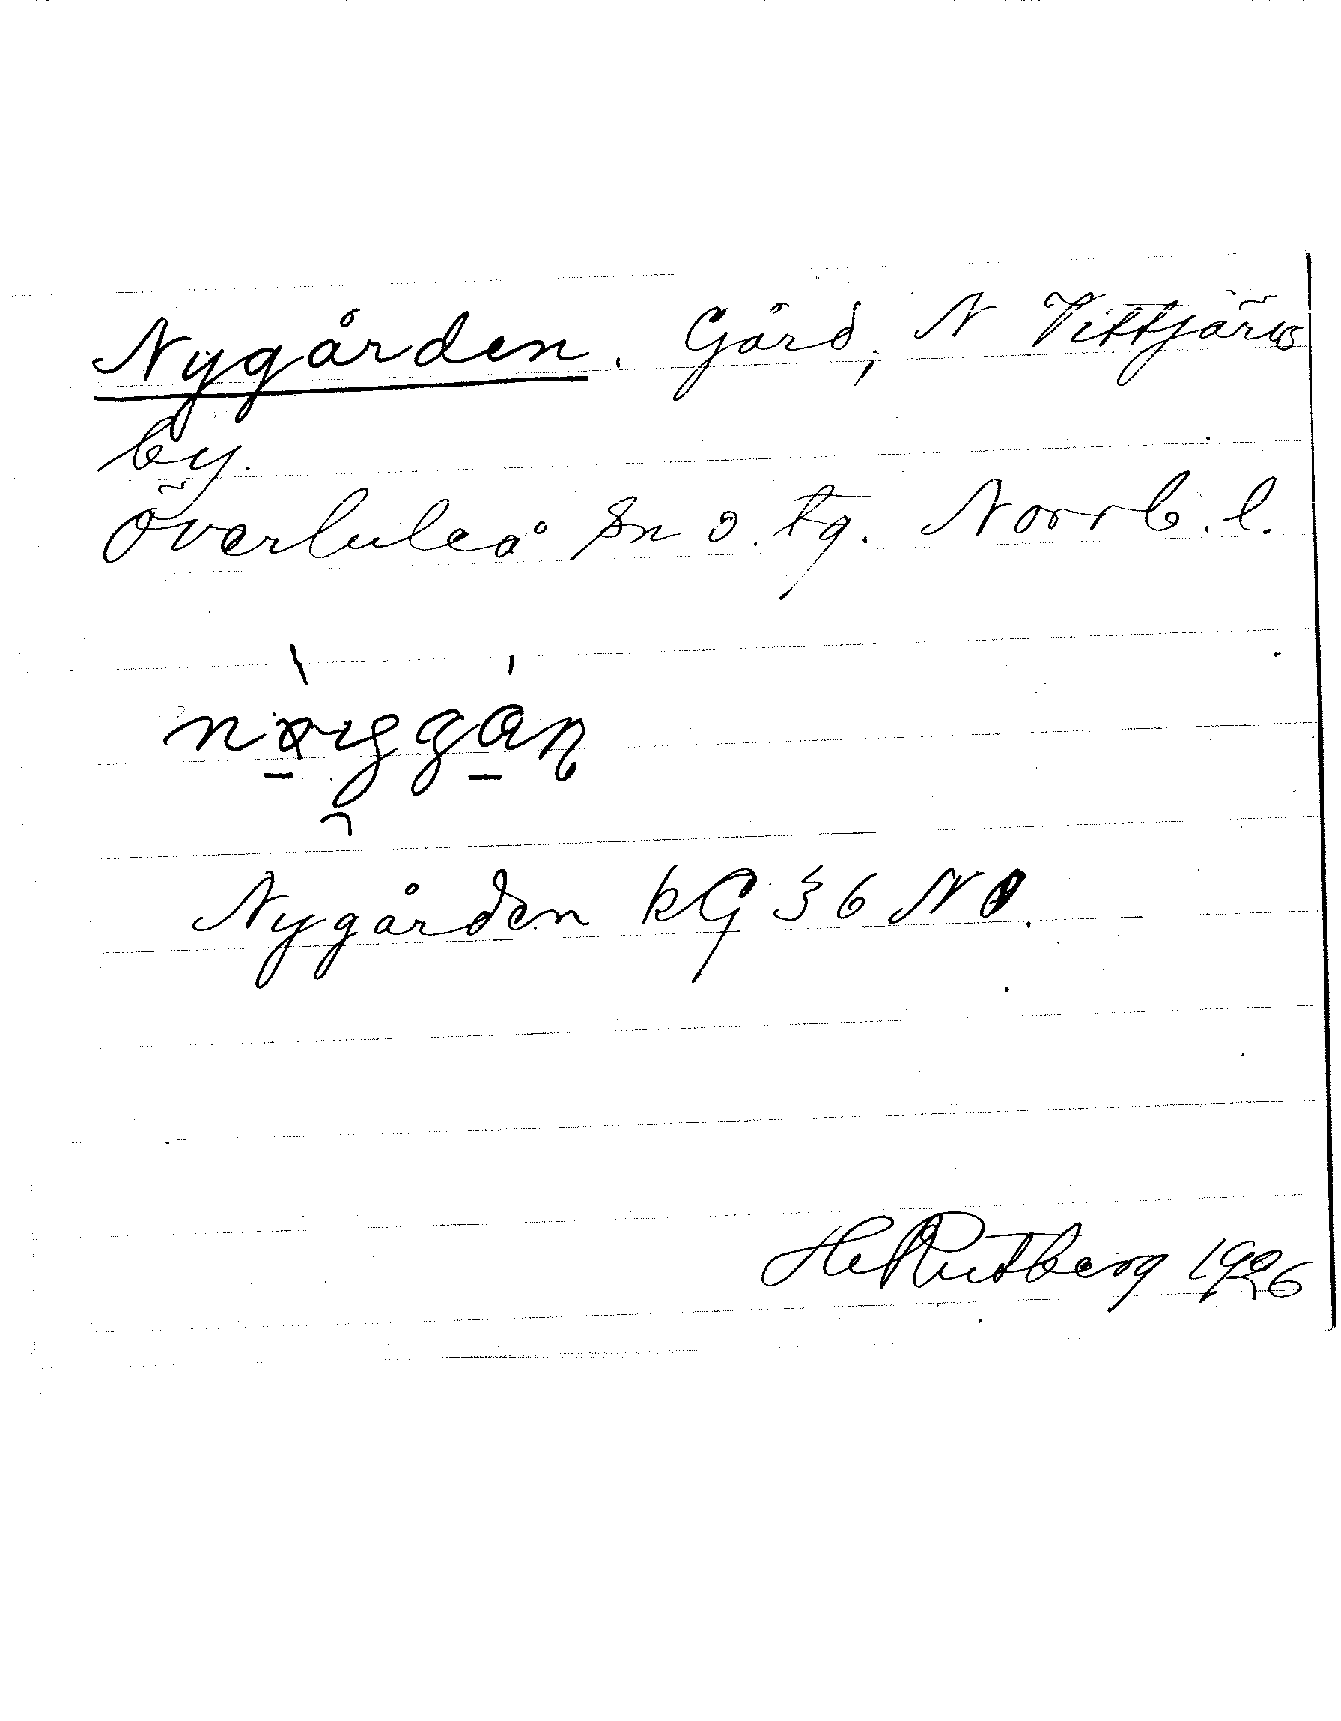 Nygården. Gård, N Vittjärvs
by.
Överluleå sn o. tg. Norrb. l.
Nygården kG 36 NO.
H Rutberg 1926